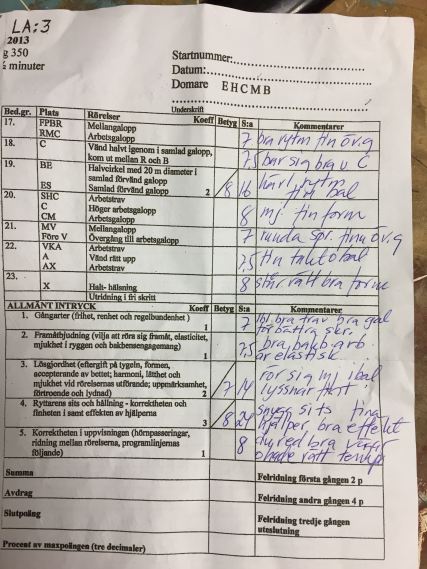 LA:3
2013
g 350
minuter
Startnummer:
Datum:
Domare E H C M B
Underskrift
Bed.gr. Plats Rörelser Koeff Betyg S:a Kommentarer
17. FPBR Mellangalopp
RMC Arbetsgalopp 7 bra rytm fin öv.g
18. C Vänd halvt igenom i samlad galopp,
kom ut mellan R och B 7,5 bär sig bra v. C
19. BE Halvcirkel med 20 m diameter i
samlad förvänd galopp
ES Samlad förvänd galopp 2 8 16 härl. rytm bal
20. SHC Arbetstrav
C Höger arbetsgalopp
CM Samlad galopp 8 mj. fin form
21. MV Mellangalopp
Före V Övergång till arbetsgalopp 7 runda spr. fina öv.g
22. VKA Arbetstrav
A Vänd rätt upp
AX Arbetstrav 7,5 fin takt o bal
23. X Halt- hälsning
Utridning i fri skritt 8 står rätt bra form
ALLMÄNT INTRYCK Koeff Betyg S:a Kommentarer
1. Gångarter (frihet, renhet och regelbundenhet )
1 7 bra trav bra gal
förbättra skr.
2. Framåtbjudning (vilja att röra sig framåt, elasticitet,
mjukhet i ryggen och bakbensengagemang)
1 7,5 bra bakb arb
är elastisk
3. Lösgjordhet (eftergift på tygeln, formen,
accepterande av bettet; harmoni, lätthet och
mjukhet vid rörelsernas utförande; uppmärksamhet,
förtroende och lydnad) 2 7 14 rör sig mj i bal
lyssnar
4. Ryttarens sits och hållning - korrektheten och
finheten i samt effekten av hjälperna
3 8 24 snygg sits fina
hjälper, bra effekt
5. Korrektheten i uppvisningen (hörnpasseringar,
ridning mellan rörelserna, programlinjernas
följande) 1 8 bra
rätt tempo
Summa Felridning första gången 2 p
Avdrag Felridning andra gången 4 p
Slutpoäng Felridning tredje gången
uteslutning
Procent av maxpoängen (tre decimaler)